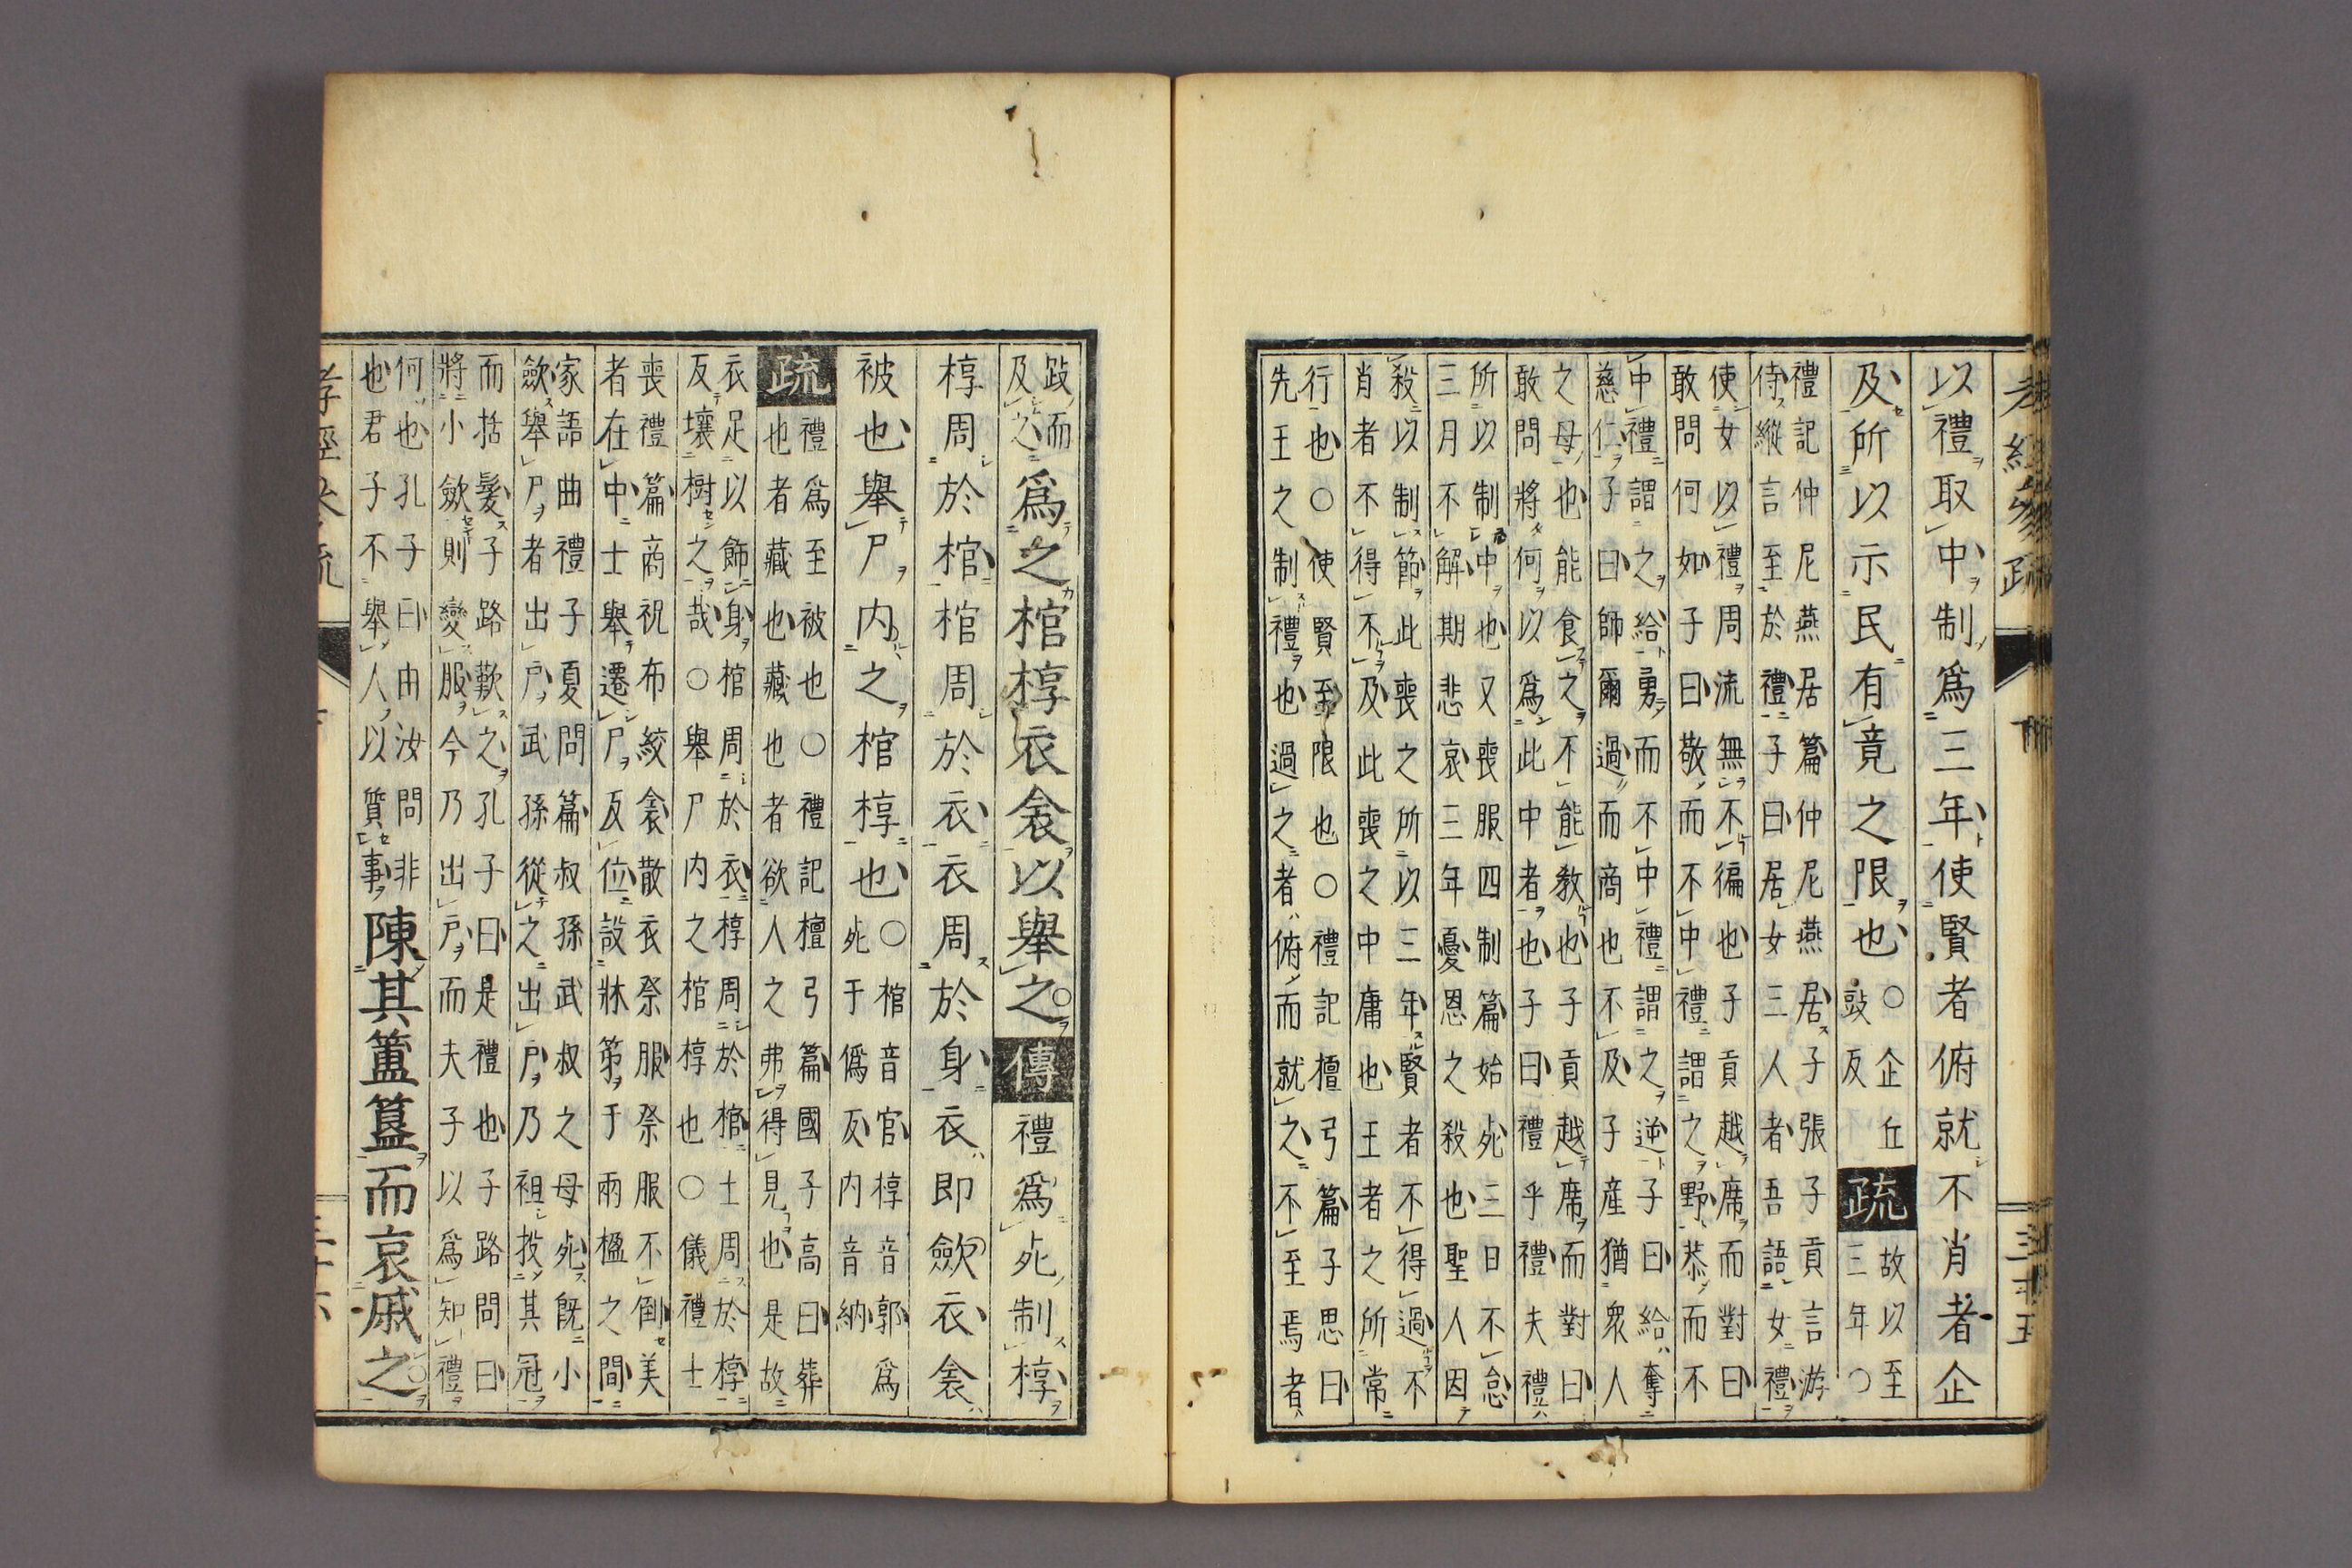 孝經參疏
下
三十五
以禮取中制爲三年使賢者俯就不肖者企
及所以示民有竟之限也
○企丘
豉反
疏
故以至
三年○
禮記仲尼燕居篇仲尼燕居子張子貢言游
侍縱言至於禮子曰居女三人者吾語女禮
使女以禮周流無不徧也子貢越席而對曰
敢問何如子曰敬而不中禮謂之野恭而不
中禮謂之給勇而不中禮謂之逆子曰給奪
慈仁子曰師爾過而商也不及子產猶衆人
之母也能食之不能教也子貢越席而對曰
敢問將何以爲此中者也子曰禮乎禮夫禮
所以制中也又喪服四制篇始死三日不怠
三月不解期悲哀三年憂恩之殺也聖人因
殺以制節此喪之所以三年賢者不得過不
肖者不得不及此喪之中庸也王者之所常
行也○使賢至限也○禮記檀弓篇子思曰
先王之制禮也過之者俯而就之不至焉者
跂而
及之
爲之棺椁衣衾以舉之
傳
禮爲死制椁
椁周於棺棺周於衣衣周於身衣即斂衣衾
被也舉尸內之棺椁也
○棺音官椁音郭爲
死于僞反內音納
疏
禮爲至被也○禮記檀弓篇國子高曰葬
也者藏也藏也者欲人之弗得見也是故
衣足以飾身棺周於衣椁周於棺土周於椁
反壤樹之哉○舉尸內之棺椁也○儀禮士
喪禮篇商祝布絞衾散衣祭服祭服不倒美
者在中士舉遷尸反位設牀笫于兩楹之間
家語曲禮子夏問篇叔孫武叔之母死既小
斂舉尸者出戶武孫從之出戶乃袒投其冠
而括髮子路歎之孔子曰是禮也子路問曰
將小斂則變服今乃出戶而夫子以爲知禮
何也孔子曰由汝問非
也君子不舉人以質事
陳其簠簋而哀慼之
孝經參疏
下
三十六